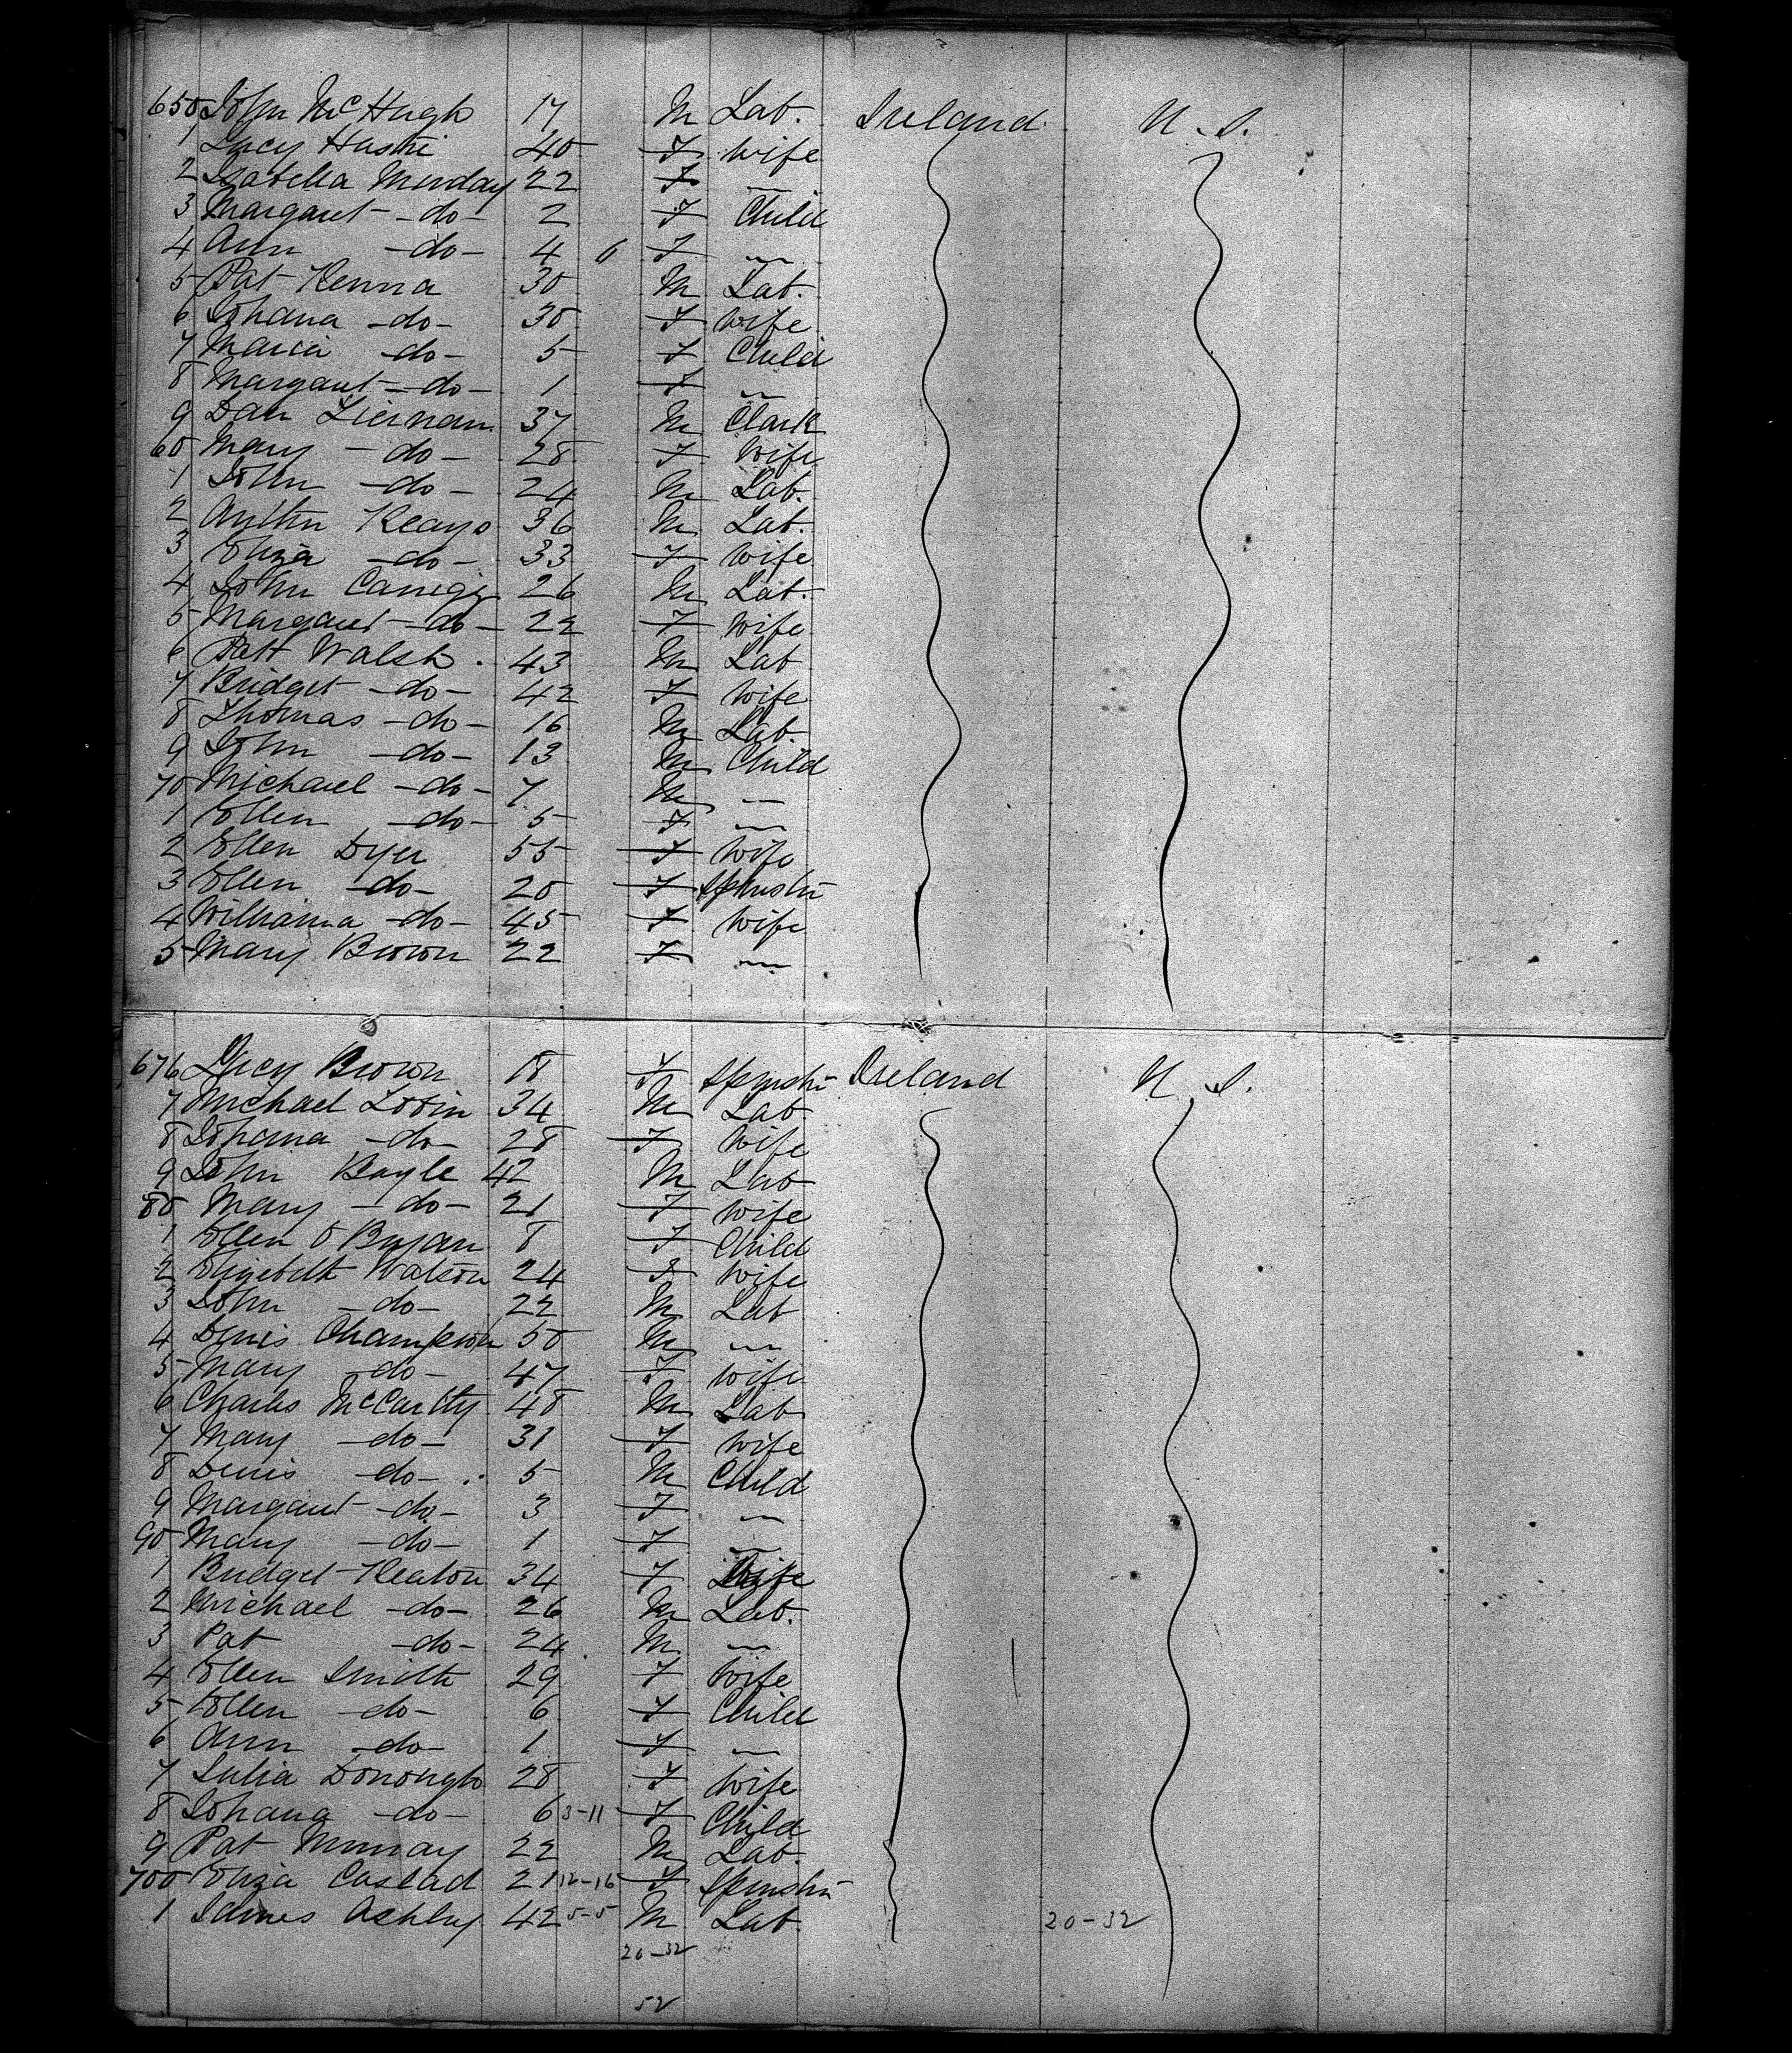 650 John McHugh 17 M Lab. Ireland U.S.
1 Lucy Hastie 40 F wife
2 Isabella Munday 22 F "
3 Margaret -do- 2 F Child
4 Ann -do- 4 6 F "
5 Pat Kenna 30 M Lab.
6 Johana -do- 30 F wife
7 Maria -do- 5 F Child
8 Margaret -do- 1 F "
9 Dan Tiernan 37 M Clark
60 Mary -do- 28 F Wife
1 John -do- 24 M Lab.
2 Keays 36 M Lab.
3 Eliza -do- 33 F Wife
4 John 26 M Lab.
5 Margaret -do- 22 F Wife
6 Patt Walsh 43 M Lab
7 Bridget -do- 42 F Wife
8 Thomas -do- 16 M Lab.
9 John -do- 13 M Child
70 Michael -do- 7 M "
1 Ellen -do- 5 F "
2 Ellen Dyer 55 F Wife
3 Ellen -do- 20 F Spinstr
4 Williama -do- 45 F Wife
5 Mary Brown 22 F "
676 Lucy Brown 18 F Spinstr Ireland U.S.
7 Michael 34 M Lab.
8 Johana -do- 28 F Wife
9 John Boyle 42 M Lab
80 Mary -do- 21 F Wife
1 Ellen O Bryan 8 F Child
2 Elizebeth Watson 24 F Wife
3 John -do- 22 M Lab
4 Denis Champion 50 M "
5 Mary -do- 47 F Wife
6 Charles McCarthy 48 M Lab
7 Mary -do- 31 F Wife
8 Denis -do- 5 M Child
9 Margaret -do- 3 F "
90 Mary -do- 1 F "
1 Bridget Heaton 34 F Wife
2 Michael -do- 26 M Lab.
3 Pat -do- 24 M "
4 Ellen Smith 29 F Wife
5 Ellen -do- 6 F Child
6 Ann -do- 1 F "
7 Julia Donough 28 F Wife
8 Johana -do- 6 3-11 F Child
9 Pat Murray 22 M Lab.
700 Eliza Caslad 21 12-16 F Spinstr
1 James Ashley 42 5-5 M Lab. 20-32
20-32
52